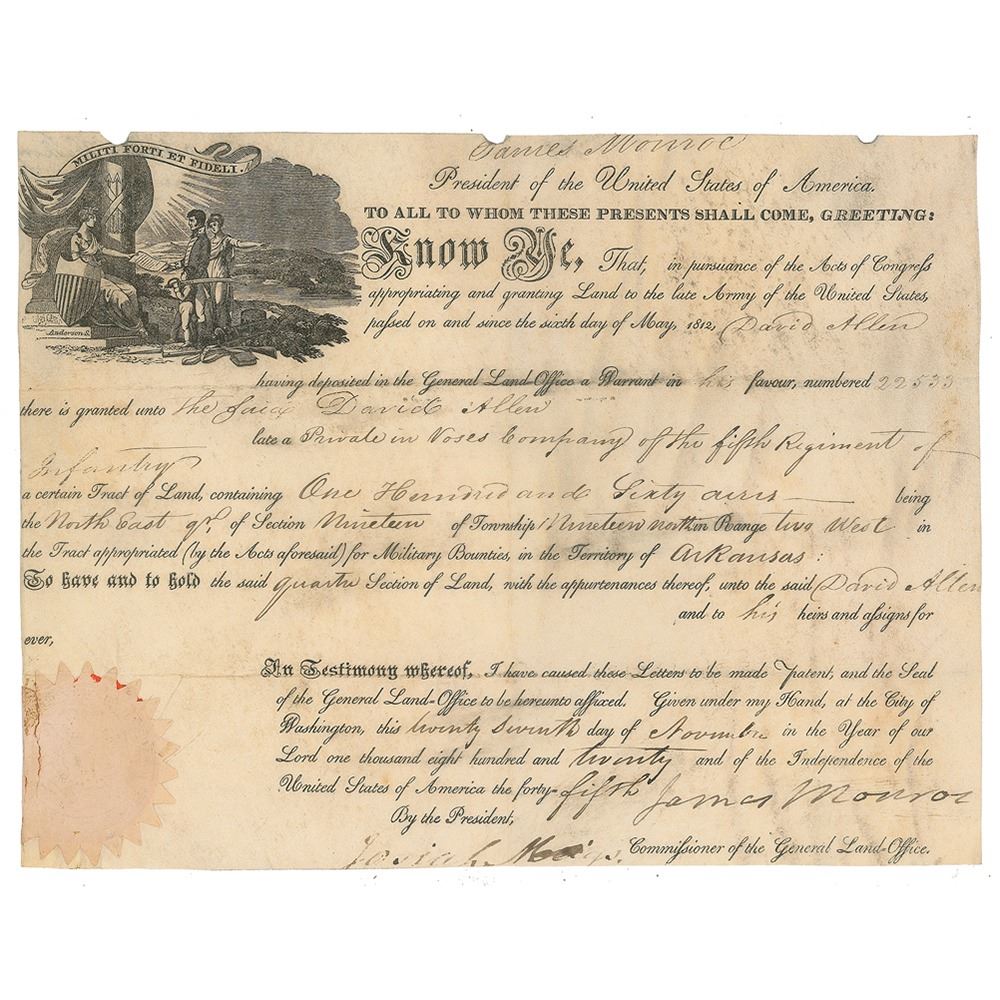 MILITI FORTI ET FIDELI.
Anderson S.
James Monroe
President of the United States of America.
TO ALL TO WHOM THESE PRESENTS SHALL COME, GREETING:
Know Ye, That, in pursuance of the Acts of Congress
appropriating and granting Land to the late Army of the United States,
passed on and since the sixth day of May, 1812, David Allen
having deposited in the General Land-Office a Warrant in his favour, numbered 22533
there is granted unto the said David Allen
late a Private in Voses Company of the fifth Regiment of
Infantry
a certain Tract of Land, containing One Hundred and Sixty acres being
the North East qr. of Section Nineteen of Township Nineteen north in Range two West in
the Tract appropriated (by the Acts aforesaid) for Military Bounties, in the Territory of Arkansas:
To have and to hold the said quarter Section of Land, with the appurtenances thereof, unto the said David Allen
and to his heirs and assigns for
ever,
In Testimony whereof, I have caused these Letters to be made Patent, and the Seal
of the General Land-Office to be hereunto affixed. Given under my Hand, at the City of
Washington, this twenty Seventh day of November in the Year of our
Lord one thousand eight hundred and twenty and of the Independence of the
United States of America the forty-fifth James Monroe
By the President,
Josiah Meigs. Commissioner of the General Land-Office.